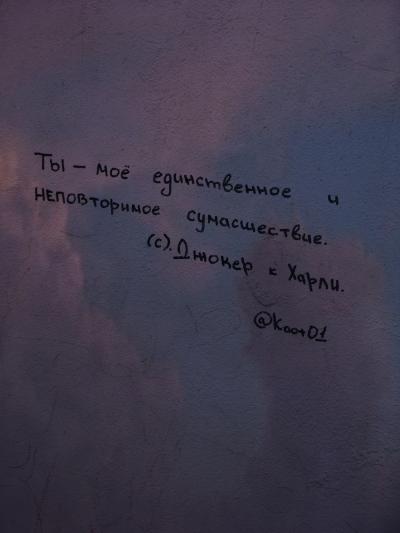 Ты – моё единственное и
неповторимое сумасшествие.
(с). Джокер к Харли.